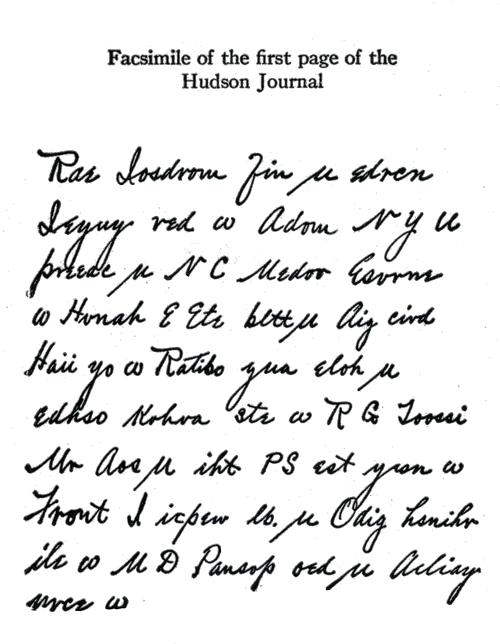 Facsimile of the first page of the
Hudson Journal
Rae Iosdrom Fin u edren
Ieyuy red w Adom N Y u
preeac u N C Medoo Esvrne
w Hvnah E Ete bltt u Aig civd
Haii yo w Ratibo yua eloh u
Edhso Kohva ste w R G Toossi
Mr Aos u iht PS est yusn w
Front I icpew lb. u Odig hsnihr
ile w M D Pansop oed u Aeliay
nvce w